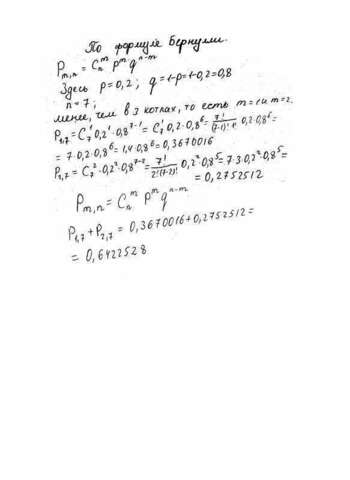 По формуле Бернулли.
P_{m,n} = C_n^m p^m q^{n-m}
Здесь p=0,2; q=1-p=1-0,2=0,8
n=7;
менее, чем в 3 котлах, то есть m=1 и m=2.
P_{1,7} = C_7^1 0,2^1·0,8^{7-1} = C_7^1 0,2·0,8^6 = 7!/(7-1)!·1! 0,2·0,8^6 =
= 7·0,2·0,8^6 = 1,4·0,8^6 = 0,3670016
P_{2,7} = C_7^2·0,2^2·0,8^{7-2} = 7!/2!(7-2)! 0,2^2·0,8^5 = 7·3·0,2^2·0,8^5 =
= 0,2752512
P_{m,n} = C_n^m p^m q^{n-m}
P_{1,7} + P_{2,7} = 0,3670016 + 0,2752512 =
= 0,6422528